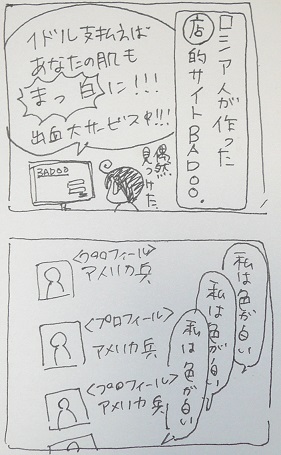 ロシア人が作った
店的サイトBADOO.
イドル支払えば
あなたの肌も
まっ白に!!!
出血大サービス中!!!
偶然
見つけた.
BADOO
私は色が白い
私は色が白い
私は色が白い
<プロフィール>
アメリカ兵
<プロフィール>
アメリカ兵
<プロフィール>
アメリカ兵